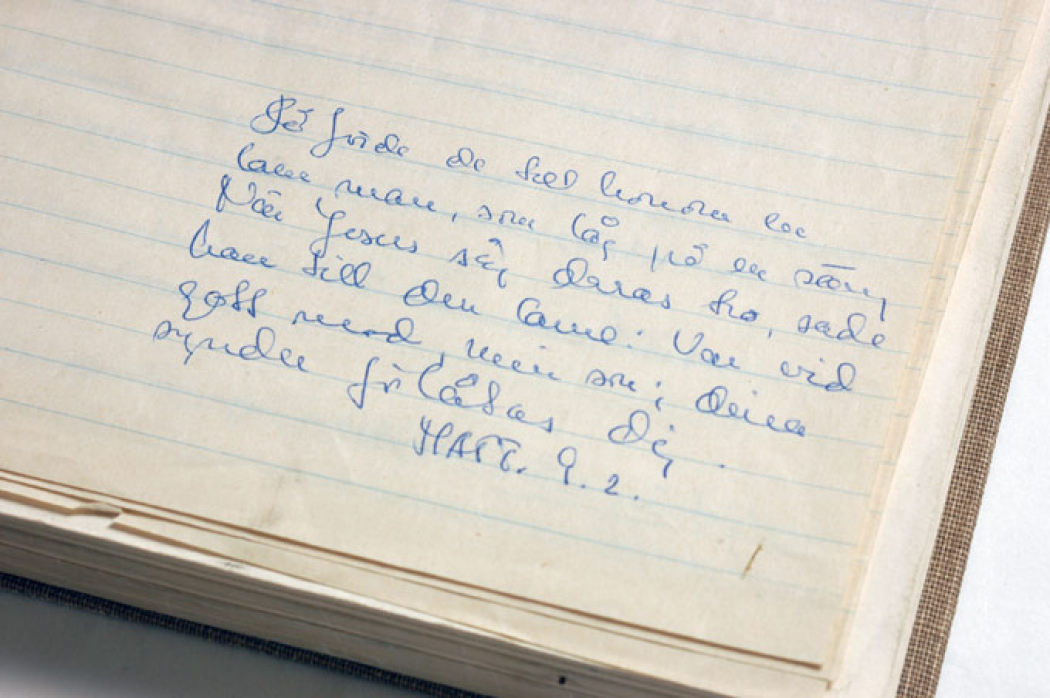 Då förde de till honom en
lam man, som låg på en säng
När Jesus såg deras tro, sade
han till den lame: Var vid
gott mod, min son; dina
synder förlåtas dig.
MATT. 9.2.